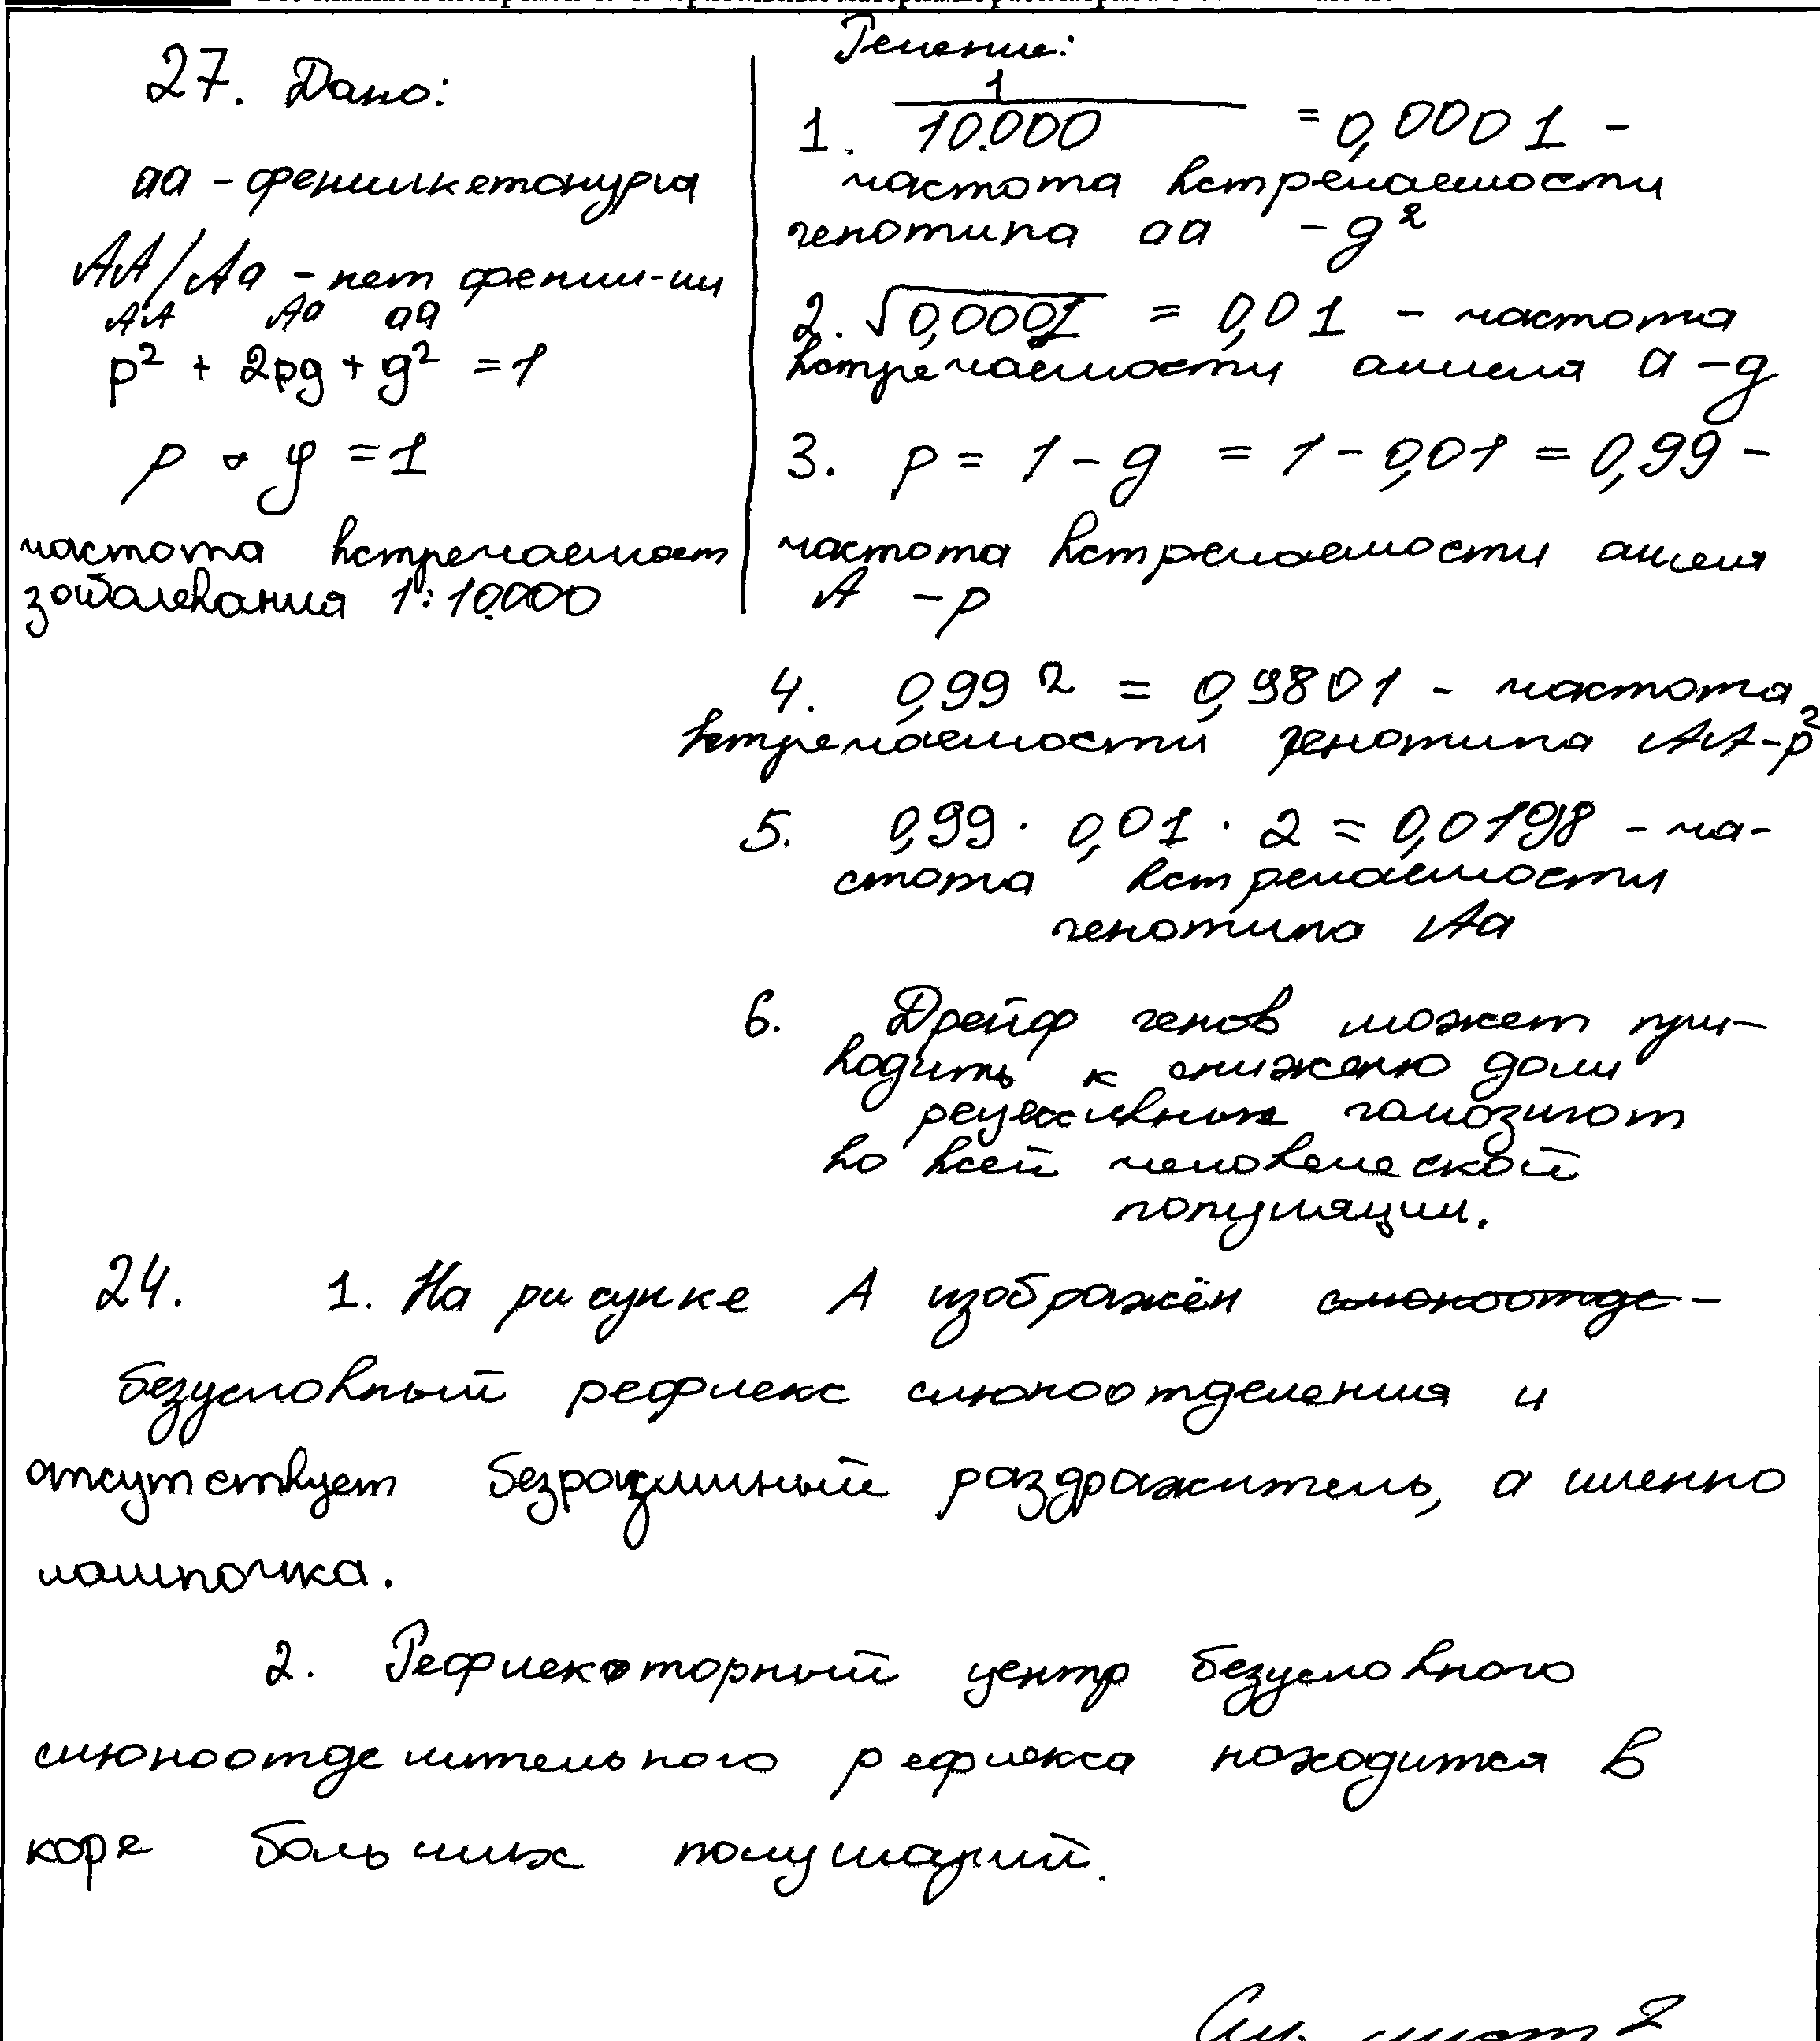 27. Дано:
аа - фенилкетонурия
АА/Аа - нет фенил-ии
АА Аа аа
p² + 2pg + g² = 1
p + g = 1
частота встречаемост
заболевания 1:10.000
Решение:
1. 1/10.000 = 0,0001 -
частота встречаемости
генотипа аа - g²
2. √0,0001 = 0,01 - частота
встречаемости аллеля а - g
3. p = 1 - g = 1 - 0,01 = 0,99 -
частота встречаемости аллеля
А - p
4. 0,99² = 0,9801 - частота
встречаемости генотипа АА - p²
5. 0,99 · 0,01 · 2 = 0,0198 - ча-
стота встречаемости
генотипа Аа
6. Дрейф генов может при-
водить к снижению доли
рецессивных гомозигот
во всей человеческой
популяции.
24. 1. На рисунке А изображён слюноотде-
безусловный рефлекс слюноотделения и
отсутствует безразличный раздражитель, а именно
лампочка.
2. Рефлекторный центр безусловного
слюноотделительного рефлекса находится в
коре больших полушарий.
См. лист 2